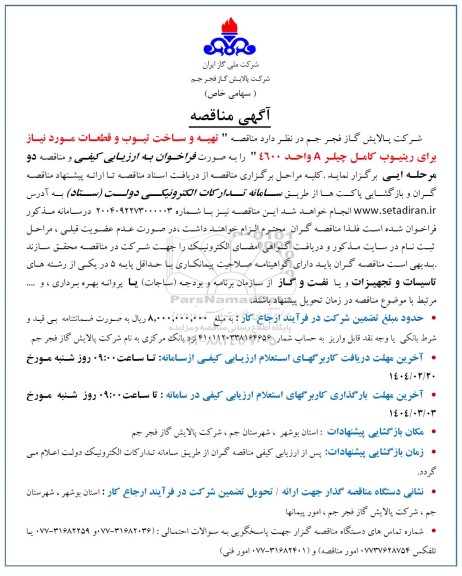 شرکت ملی گاز ایران
شرکت پالایش گاز فجر جم
( سهامی خاص )
آگهی مناقصه
شرکت پالایش گاز فجر جم در نظر دارد مناقصه " تهیه و ساخت تیوب و قطعات مورد نیاز
برای ریتیوب کامل چیلر A واحد ۴۶۰۰ " را به صورت فراخوان به ارزیابی کیفی و مناقصه دو
مرحله ایی برگزار نماید .کلیه مراحل برگزاری مناقصه از دریافت اسناد مناقصه تا ارائه پیشنهاد مناقصه
گران و بازگشایی پاکت ها از طریق سامانه تدارکات الکترونیکی دولت (ستاد) به آدرس
www.setadiran.ir انجام خواهد شد این مناقصه نیز با شماره ۲۰۰۴۰۹۲۲۷۳۰۰۰۰۰۳ درسامانه مذکور
فراخوان شده است فلذا مناقصه گران محترم الزام خواهند داشت ،در صورت عدم عضویت قبلی ، مراحل
ثبت نام در سایت مذکور و دریافت گواهی امضای الکترونیک را جهت شرکت در مناقصه محقق سازند
.بدیهی است مناقصه گران باید دارای گواهینامه صلاحیت پیمانکاری با حداقل پایه ۵ در یکی از رشته های
تاسیسات و تجهیزات و یا نفت و گاز از سازمان برنامه و بودجه (ساجات) یا پروانه بهره برداری ، و ....
مرتبط با موضوع مناقصه در زمان تحویل پیشنهاد باشند.
• حدود مبلغ تضمین شرکت در فرآیند ارجاع کار : به مبلغ ۸,۰۰۰,۰۰۰,۰۰۰ ریال به صورت ضمانتنامه بی قید و
شرط بانکی یا وجه نقد قابل واریز به حساب شمار ۴۱۰۱۱۲۰۳۳۸۱۶۴۶۵۶ نزد بانک مرکزی به نام شرکت پالایش گاز فجر جم
• آخرین مهلت دریافت کاربرگهای استعلام ارزیابی کیفی ازسامانه: تا ساعت ۰۹:۰۰ روز شنبه مورخ
۱۴۰۴/۰۲/۲۰
• آخرین مهلت بارگذاری کاربرگهای استعلام ارزیابی کیفی در سامانه : تا ساعت ۰۹:۰۰ روز شنبه مورخ
۱۴۰۴/۰۳/۰۳
• مکان بازگشایی پیشنهادات : استان بوشهر ، شهرستان جم ، شرکت پالایش گاز فجر جم
• زمان بازگشایی پیشنهادات: پس از ارزیابی کیفی مناقصه گران از طریق سامانه تدارکات الکترونیک دولت اعلام می
گردد.
• نشانی دستگاه مناقصه گذار جهت ارائه / تحویل تضمین شرکت در فرآیند ارجاع کار : استان بوشهر ، شهرستان
جم ، شرکت پالایش گاز فجر جم ، امور پیمانها
• شماره تماس های دستگاه مناقصه گزار جهت پاسخگویی به سوالات احتمالی : (۳۱۶۸۲۰۳۶-۰۷۷ و ۳۱۶۸۲۲۵۹-۰۷۷ یا
تلفکس ۰۷۷۳۷۶۲۸۷۵۴ امور مناقصه) و (۳۱۶۸۲۴۰۱-۰۷۷ امور فنی)